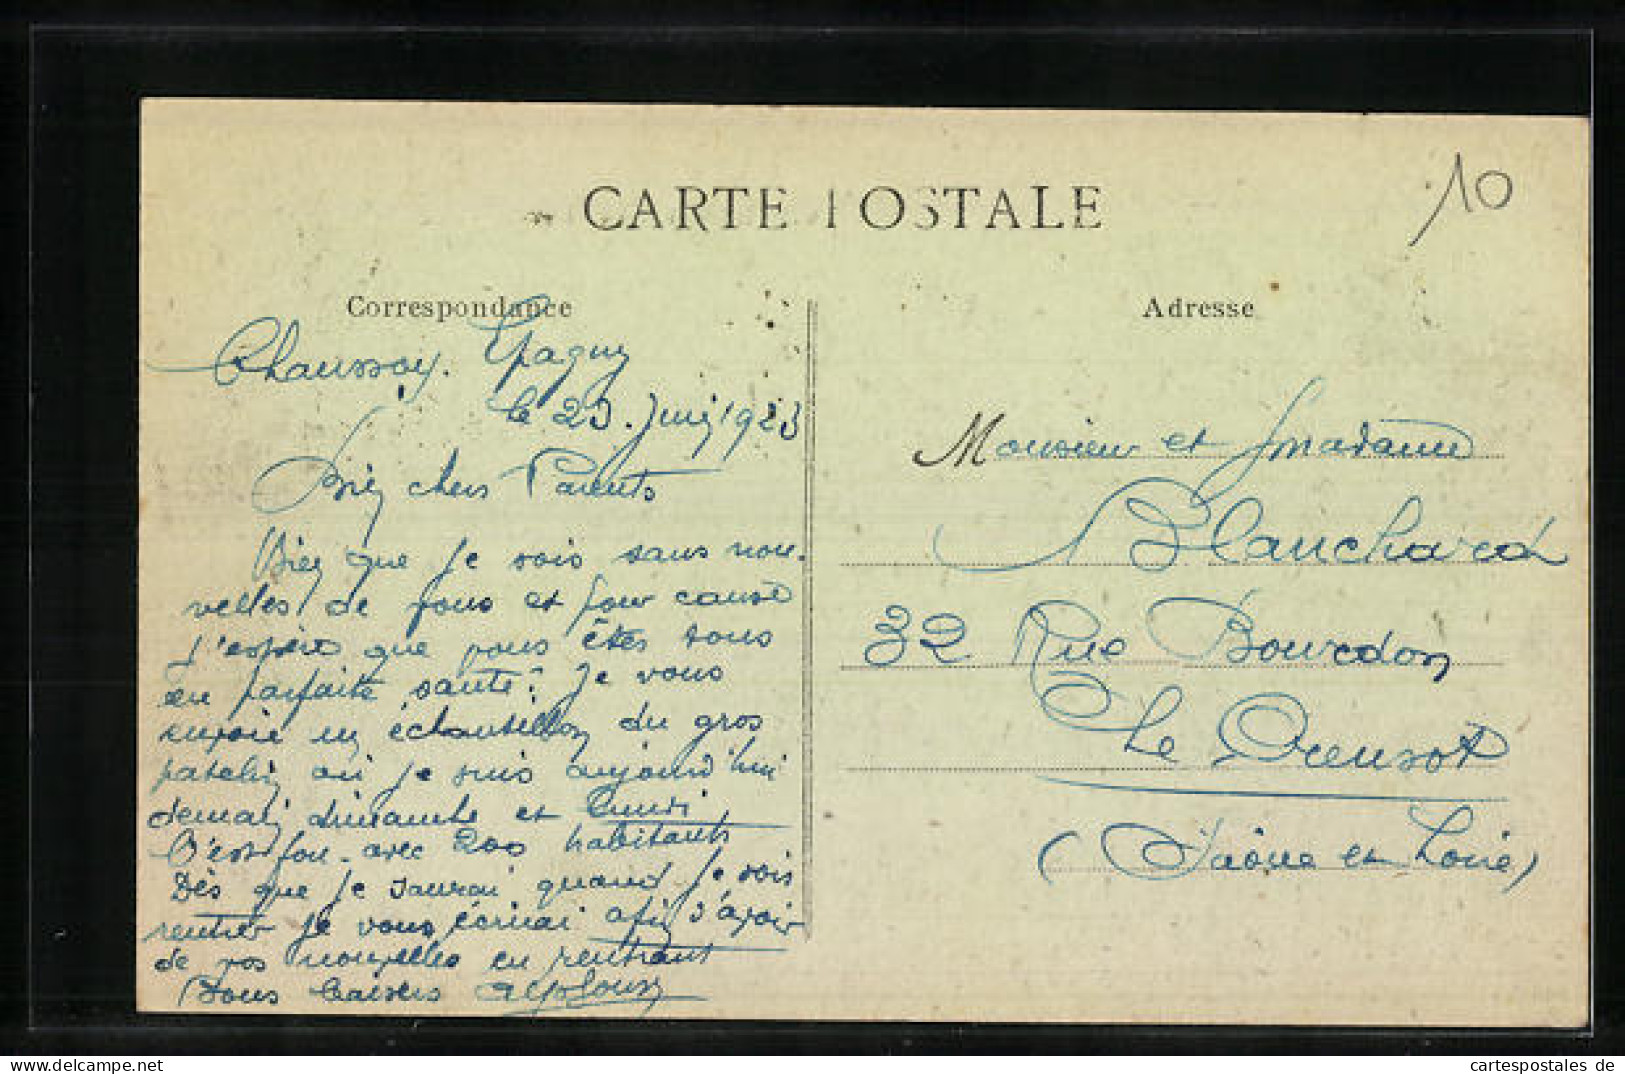 CARTE POSTALE
10
Correspondance
Adresse
Chaussoy. Epagny
le 23 Juin 1923
Bien chers Parents
Bien que je sois sans nou-
velles de vous et pour cause
j'espère que vous êtes tous
en parfaite santé. Je vous
envoie un échantillon du gros
patelin où je suis aujourd'hui
demain dimanche et lundi
C'est fou. avec 200 habitants
Dès que je saurai quand je vais
rentrer je vous écrirai afin d'avoir
de vos nouvelles en rentrant
Bons baisers
Monsieur et Madame
Blanchard
32 Rue Bourdon
Le Creusot
(Saône et Loire)
cartespostales de